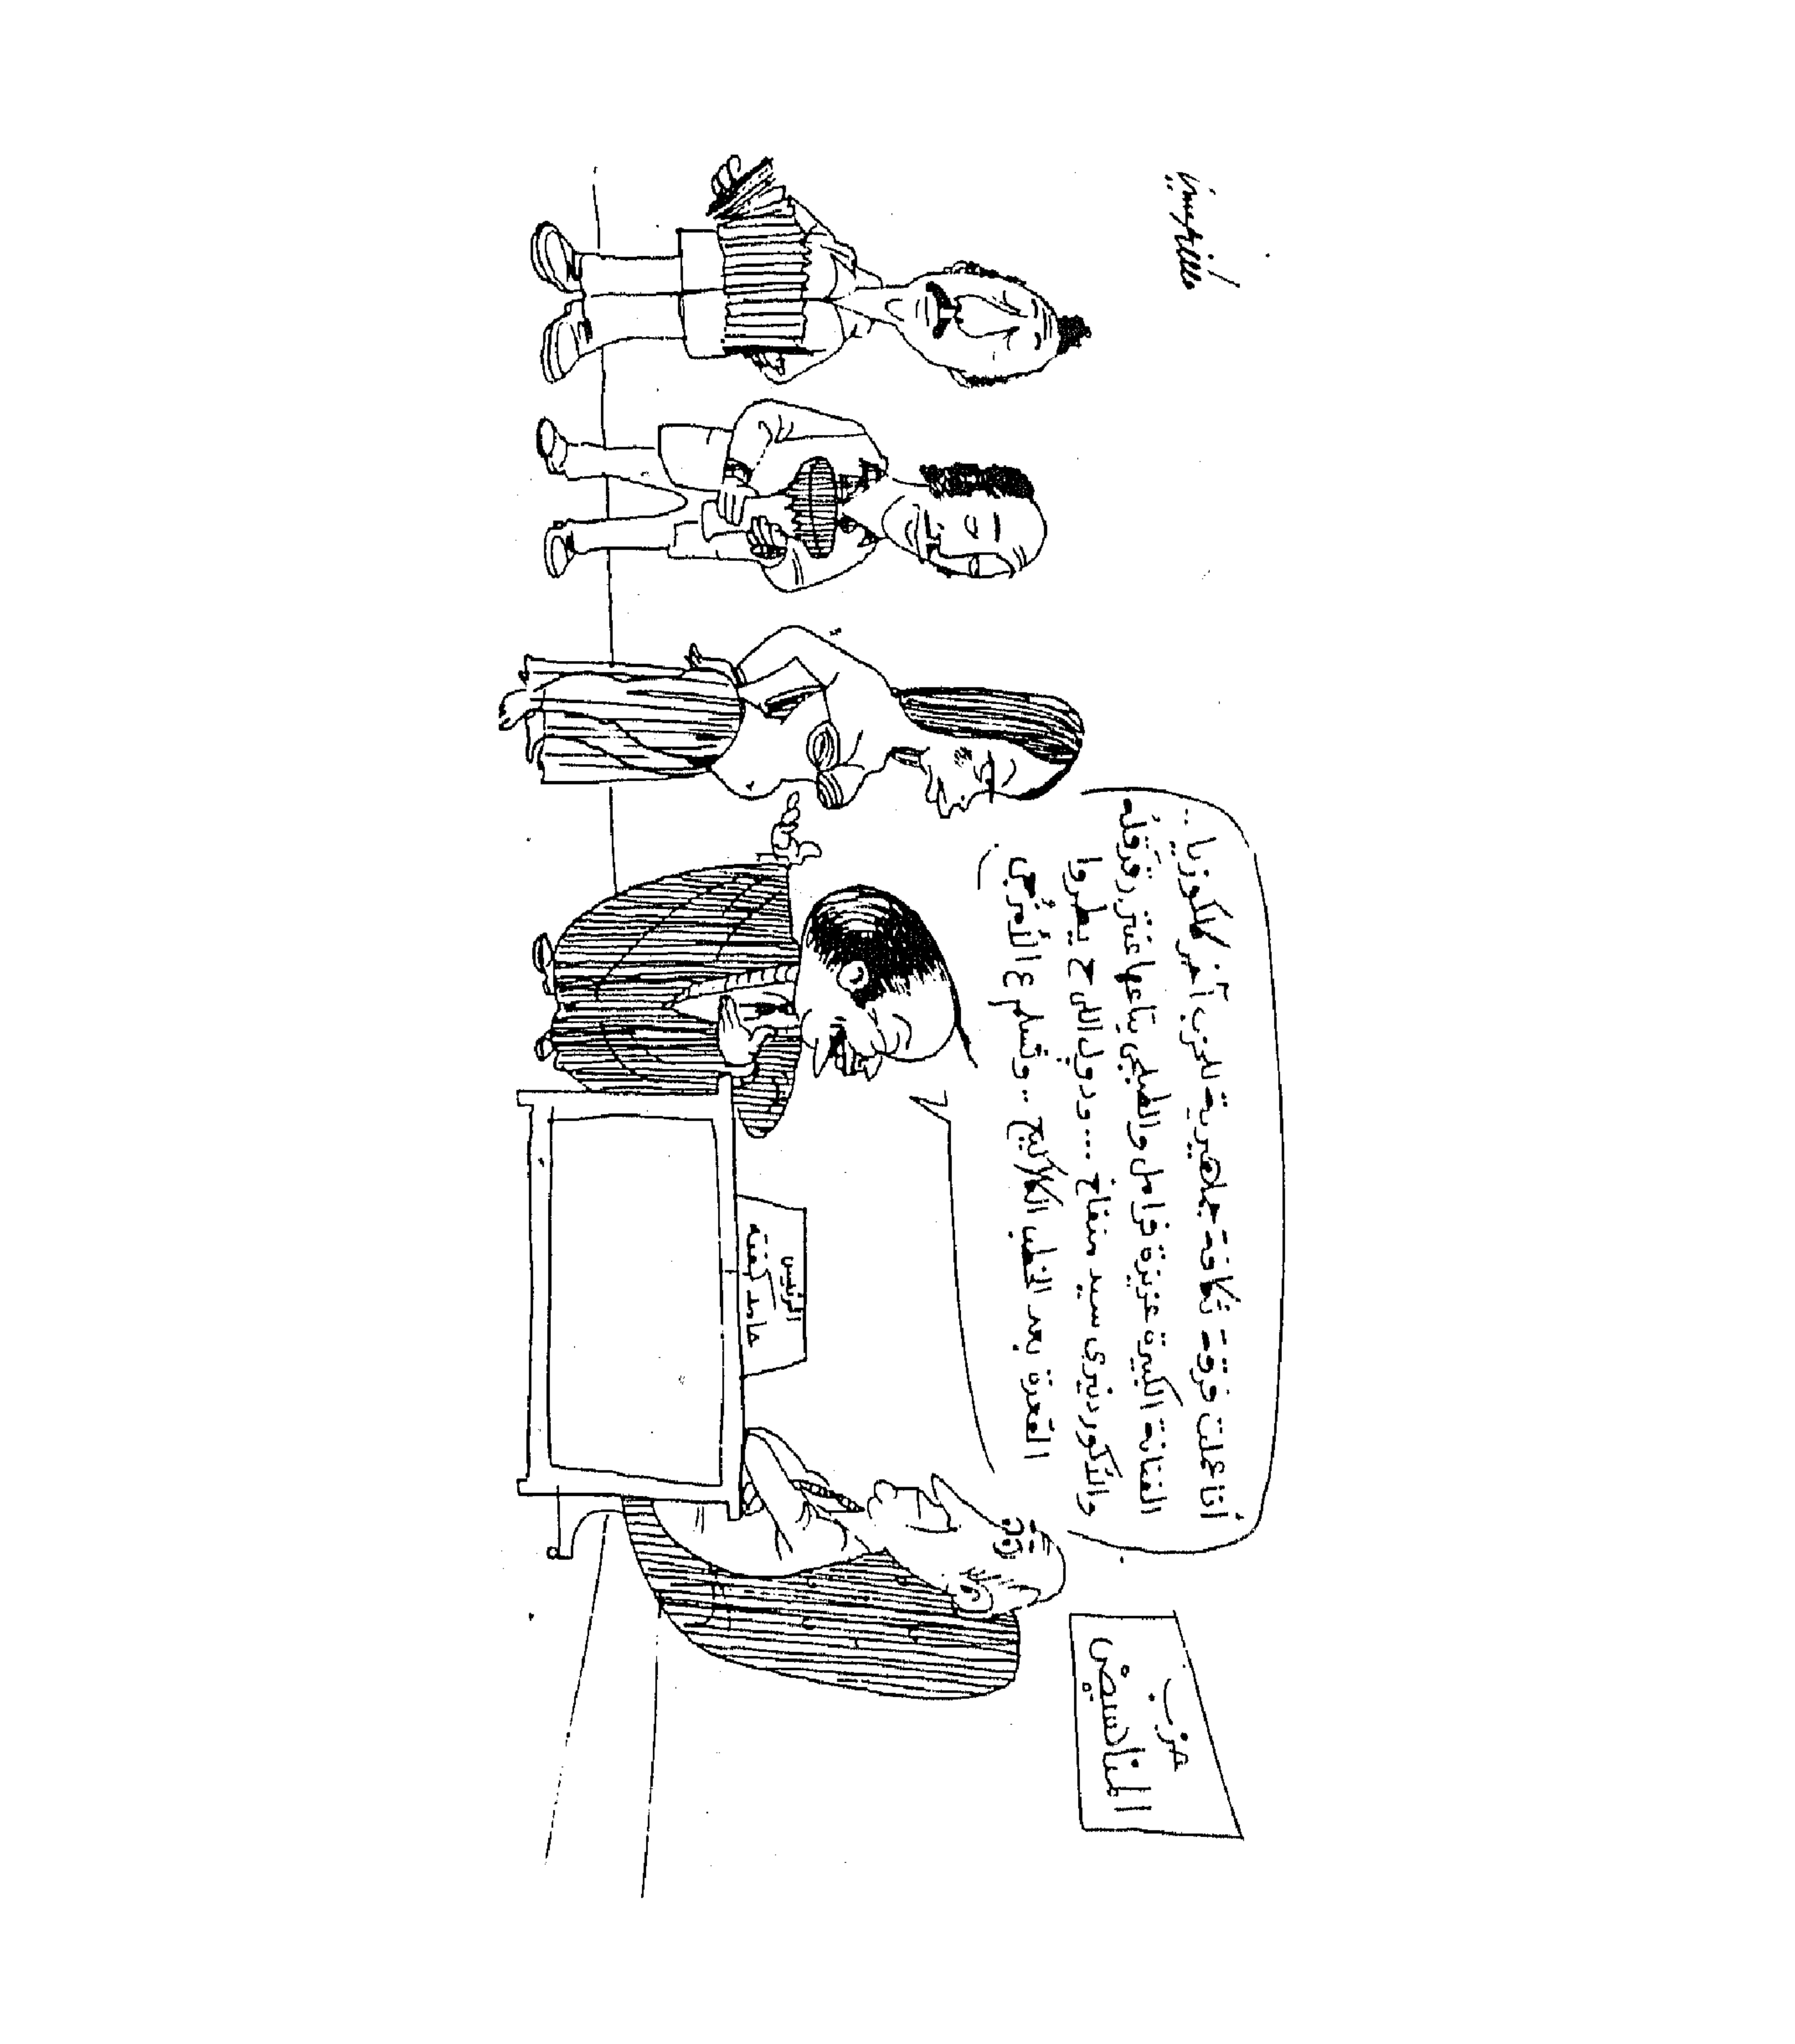 حزب
المناحيض
أنا عملت فرقة ثقافة جماهيرية للحزب آخر ألاكوزيا ..
الفنانة الكبيرة عزيزة فرامل والطبلجي بتاعها عنتر رقرقله
والأكورديري سيد منفاخ ... ودول اللي ح يطروا
القعدة بعد الخطب الكلاليح .. وتسلم ع اللُمرجي
الرئيس
حامد كفته